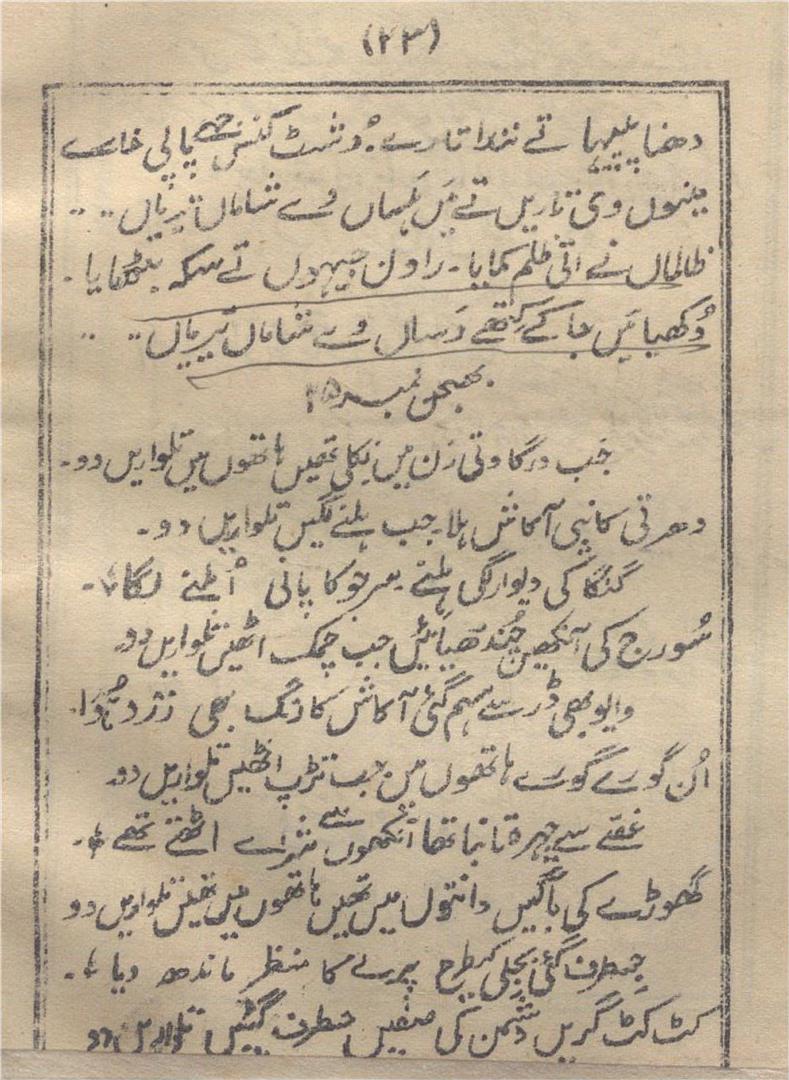 (۲۳)
دھنا پلیہا تے نندا تارے۔ دُشٹ کنس جہے پاپی خارے
مینوں وی تاریں تے میں کہساں وے شاماں تیریاں ۔۔
ظالماں نے اتی ظلم کمایا۔ راون جیہوں تے سکہ بٹھایا۔
دُکھیا میں جا کے کِتھے دَساں وے شاماں تیریاں ۔۔
بھجن نمبر ۲۵
جَب درگا وتی رَن میں نِکلی تھیں ہاتھوں میں تلواریں دو۔
دھرتی کانپی آکاش ہلا۔ جب ہلنے لگیں تلواریں دو۔
گنگا کی دیوار لگی ہلنے سرجو کا پانی اُبلنے لگا۔
سُورج کی آنکھیں چُندھیائیں جب چمک اٹھیں تلواریں دو
وایو بھی ڈر سے سہم گئی آکاش کا رنگ بھی زرد ہُوا۔
اُن گورے گورے ہاتھوں میں جب تڑپ اٹھیں تلواریں دو
غصے سے چہرہ تانبا تھا آنکھوں سے شرارے اٹھتے تھے۔
گھوڑے کی باگیں دانتوں میں تھیں ہاتھوں میں تھیں تلواریں دو
جِسطرف گئی بجلی کیطرح پرلے کا منظر باندھ دیا۔
کٹ کٹ گریں دشمن کی صفیں جسطرف گئیں تلواریں دو